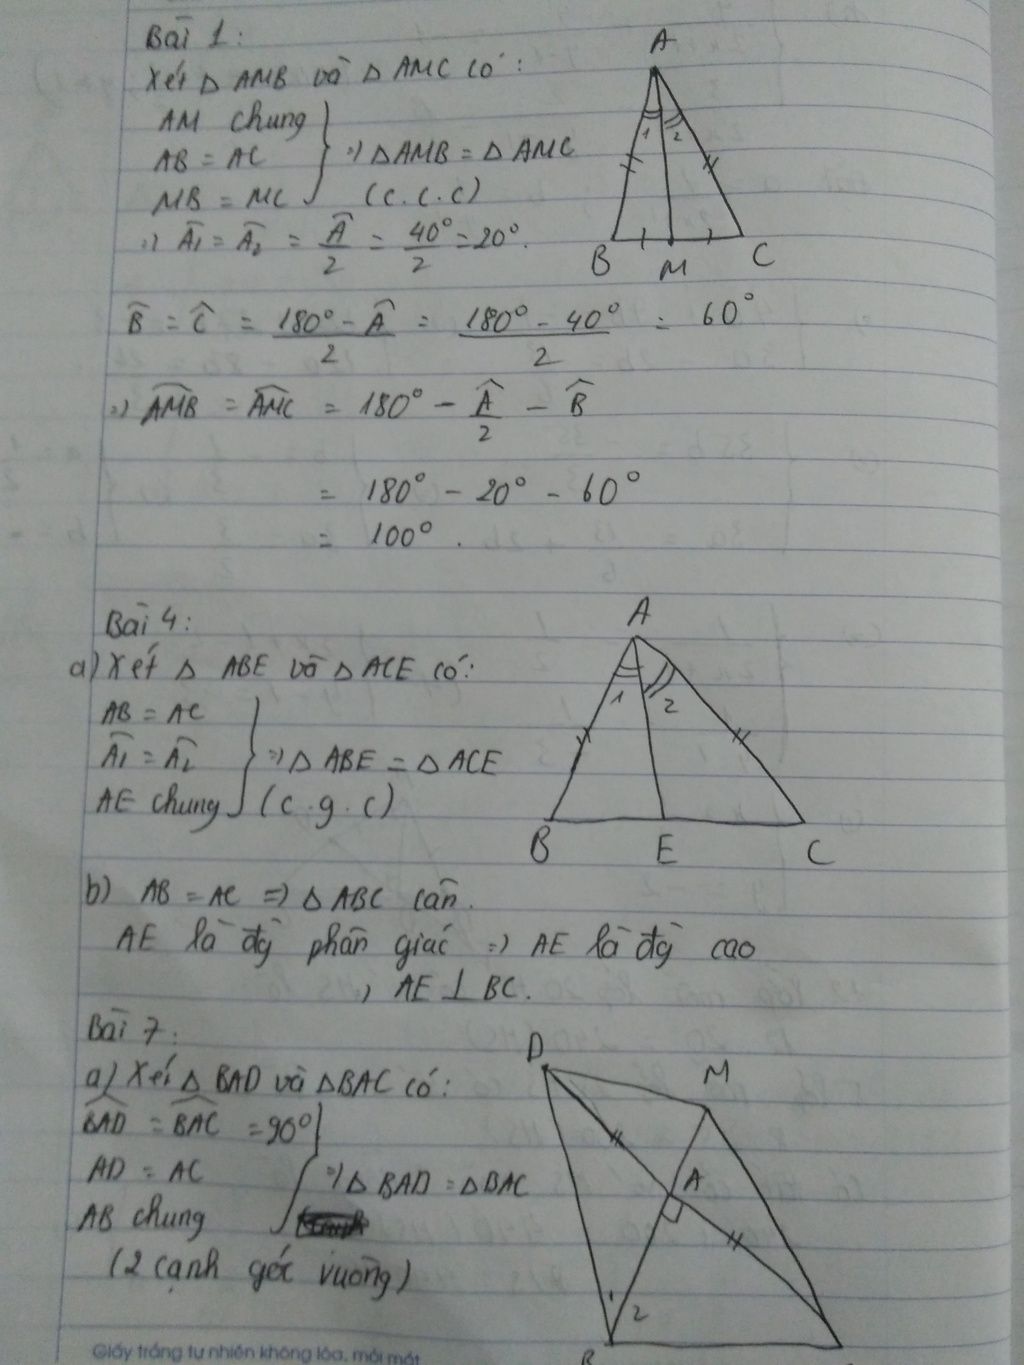 Bài 1:
Xét △ AMB và △ AMC có:
AM chung
AB = AC
MB = MC
=> △AMB = △AMC
(c.c.c)
=> Â1 = Â2 = Â/2 = 40°/2 = 20°.
A
1 2
B M C
B̂ = Ĉ = (180° - Â)/2 = (180° - 40°)/2 = 60°
=> AMB = AMC = 180° - Â/2 - B̂
= 180° - 20° - 60°
= 100°.
Bài 4:
a) Xét △ ABE và △ ACE có:
AB = AC
Â1 = Â2
AE chung
=> △ ABE = △ ACE
(c.g.c)
A
1 2
B E C
b) AB = AC => △ ABC cân.
AE là đg phân giác => AE là đg cao
=> AE ⊥ BC.
Bài 7:
a) Xét △ BAD và △BAC có:
BAD = BAC = 90°
AD = AC
AB chung
=> △ BAD = △BAC
(2 cạnh góc vuông)
D
M
A
2
B
Giấy trắng tự nhiên không lóa, mỏi mắt